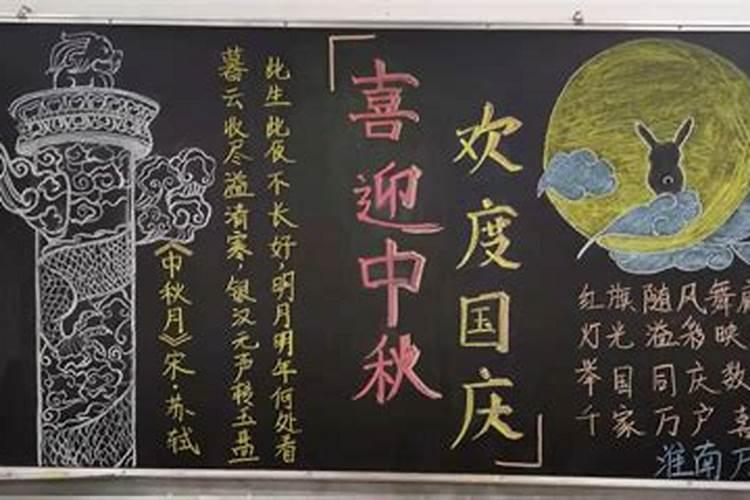 《中秋月》宋·苏轼
暮云收尽溢清寒，银汉无声转玉盘
此生此夜不长好，明月明年何处看
「喜迎中秋
欢度国庆」
红旗随风舞
灯光溢彩映
举国同庆
千家万户
淮南